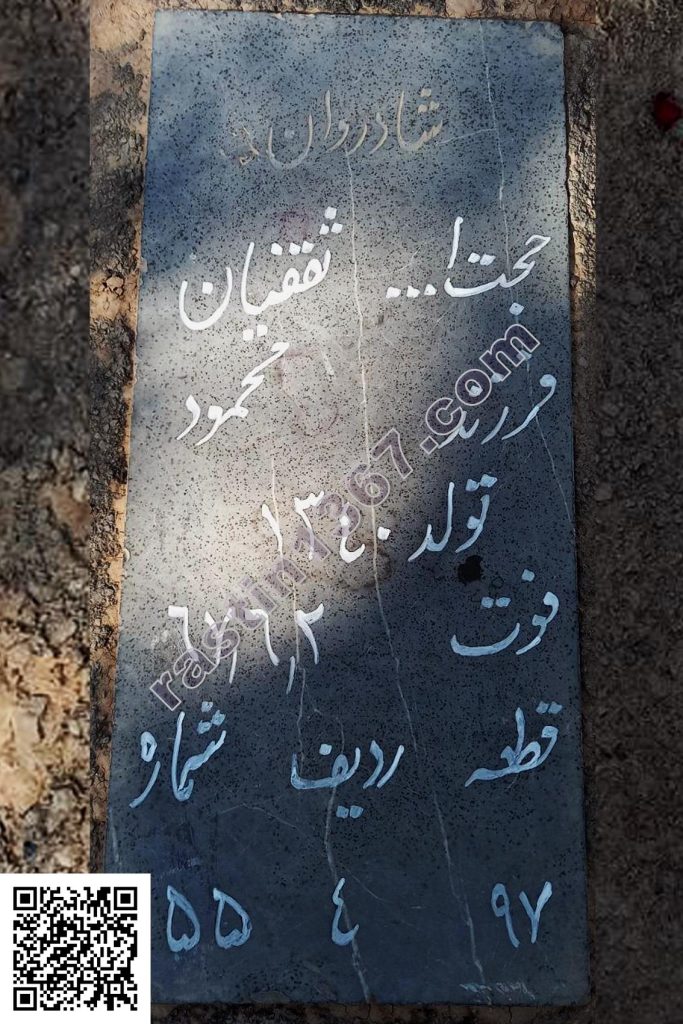 شادروان
حجت ا... ثقفیان
فرزند محمود
تولد ۱۳٤۰
فوت
قطعه ردیف شماره
۹۷ ٤ ۵۵
rastin1367.com